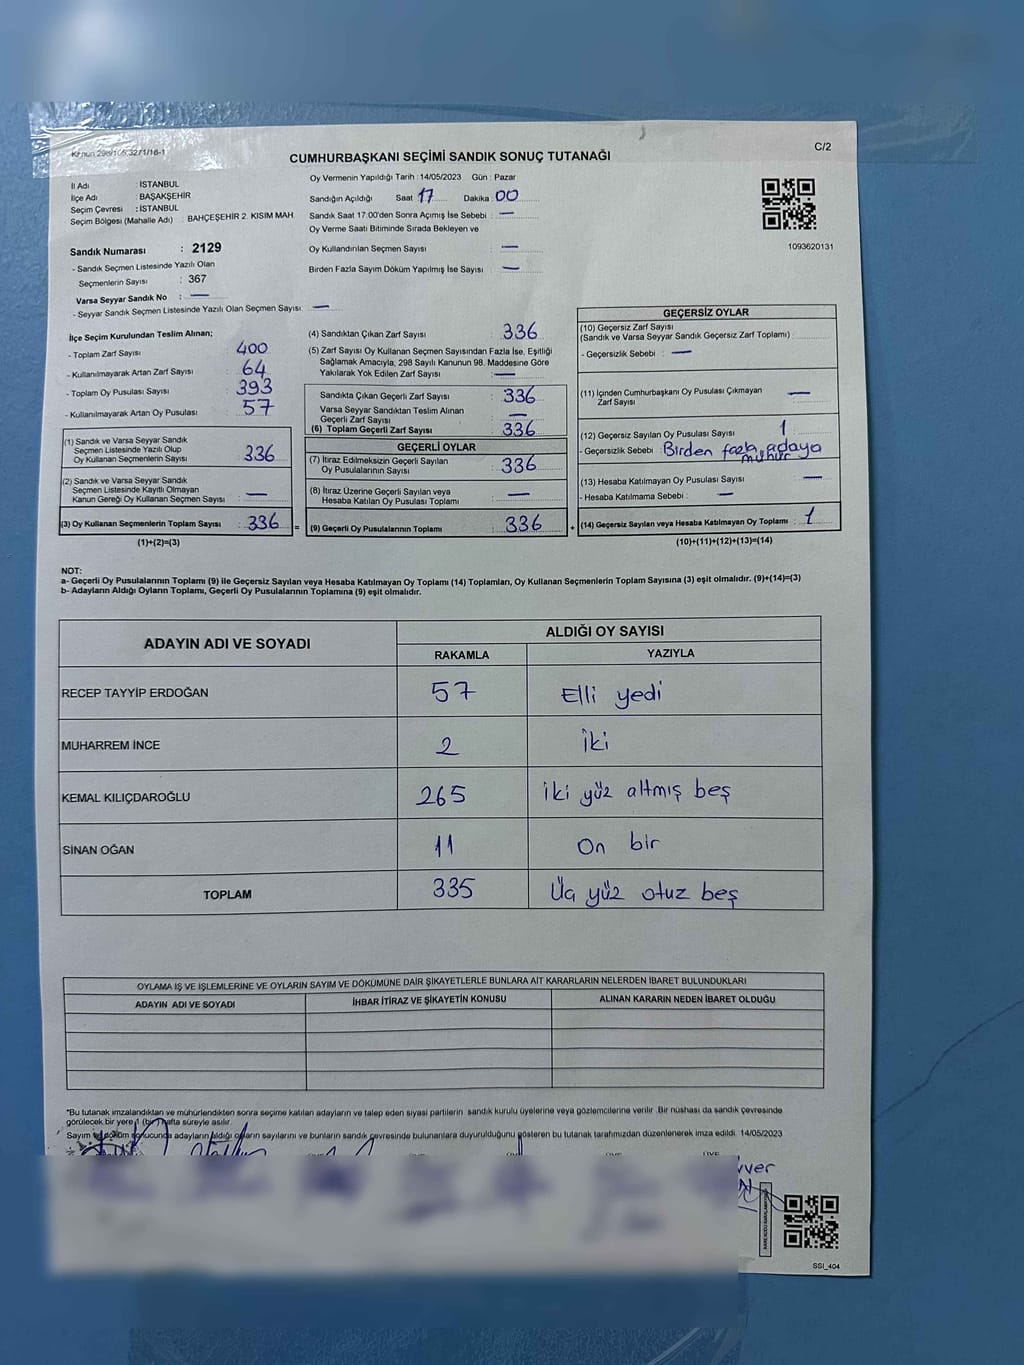 Kanun 298/105,3271/16-1
C/2
CUMHURBAŞKANI SEÇİMİ SANDIK SONUÇ TUTANAĞI
İl Adı : İSTANBUL
İlçe Adı : BAŞAKŞEHİR
Seçim Çevresi : İSTANBUL
Seçim Bölgesi (Mahalle Adı) : BAHÇEŞEHİR 2. KISIM MAH.
Sandık Numarası : 2129
- Sandık Seçmen Listesinde Yazılı Olan
Seçmenlerin Sayısı : 367
Varsa Seyyar Sandık No : —
- Seyyar Sandık Seçmen Listesinde Yazılı Olan Seçmen Sayısı : —
Oy Vermenin Yapıldığı Tarih : 14/05/2023 Gün : Pazar
Sandığın Açıldığı Saat 17 Dakika 00
Sandık Saat 17:00'den Sonra Açımış İse Sebebi : —
Oy Verme Saati Bitiminde Sırada Bekleyen ve
Oy Kullandırılan Seçmen Sayısı : —
Birden Fazla Sayım Döküm Yapılmış İse Sayısı : —
1093620131
İlçe Seçim Kurulundan Teslim Alınan;
- Toplam Zarf Sayısı : 400
- Kullanılmayarak Artan Zarf Sayısı : 64
- Toplam Oy Pusulası Sayısı : 393
- Kullanılmayarak Artan Oy Pusulası : 57
(1) Sandık ve Varsa Seyyar Sandık
Seçmen Listesinde Yazılı Olup
Oy Kullanan Seçmenlerin Sayısı : 336
(2) Sandık ve Varsa Seyyar Sandık
Seçmen Listesinde Kayıtlı Olmayan
Kanun Gereği Oy Kullanan Seçmen Sayısı : —
(3) Oy Kullanan Seçmenlerin Toplam Sayısı : 336
(1)+(2)=(3)
(4) Sandıktan Çıkan Zarf Sayısı : 336
(5) Zarf Sayısı Oy Kullanan Seçmen Sayısından Fazla İse, Eşitliği
Sağlamak Amacıyla, 298 Sayılı Kanunun 98. Maddesine Göre
Yakılarak Yok Edilen Zarf Sayısı : —
Sandıkta Çıkan Geçerli Zarf Sayısı : 336
Varsa Seyyar Sandıktan Teslim Alınan
Geçerli Zarf Sayısı : —
(6) Toplam Geçerli Zarf Sayısı : 336
GEÇERLİ OYLAR
(7) İtiraz Edilmeksizin Geçerli Sayılan
Oy Pusulalarının Sayısı : 336
(8) İtiraz Üzerine Geçerli Sayılan veya
Hesaba Katılan Oy Pusulası Toplamı : —
= (9) Geçerli Oy Pusulalarının Toplamı : 336 +
GEÇERSİZ OYLAR
(10) Geçersiz Zarf Sayısı
(Sandık ve Varsa Seyyar Sandık Geçersiz Zarf Toplamı) :
- Geçersizlik Sebebi : —
(11) İçinden Cumhurbaşkanı Oy Pusulası Çıkmayan
Zarf Sayısı : —
(12) Geçersiz Sayılan Oy Pusulası Sayısı : 1
- Geçersizlik Sebebi : Birden fazla adaya
mühür
(13) Hesaba Katılmayan Oy Pusulası Sayısı : —
- Hesaba Katılmama Sebebi : —
(14) Geçersiz Sayılan veya Hesaba Katılmayan Oy Toplamı : 1
(10)+(11)+(12)+(13)=(14)
NOT:
a- Geçerli Oy Pusulalarının Toplamı (9) ile Geçersiz Sayılan veya Hesaba Katılmayan Oy Toplamı (14) Toplamları, Oy Kullanan Seçmenlerin Toplam Sayısına (3) eşit olmalıdır. (9)+(14)=(3)
b- Adayların Aldığı Oyların Toplamı, Geçerli Oy Pusulalarının Toplamına (9) eşit olmalıdır.
ADAYIN ADI VE SOYADI
ALDIĞI OY SAYISI
RAKAMLA YAZIYLA
RECEP TAYYİP ERDOĞAN 57 Elli yedi
MUHARREM İNCE 2 İki
KEMAL KILIÇDAROĞLU 265 İki yüz altmış beş
SİNAN OĞAN 11 On bir
TOPLAM 335 Üç yüz otuz beş
OYLAMA İŞ VE İŞLEMLERİNE VE OYLARIN SAYIM VE DÖKÜMÜNE DAİR ŞİKAYETLERLE BUNLARA AİT KARARLARIN NELERDEN İBARET BULUNDUKLARI
ADAYIN ADI VE SOYADI İHBAR İTİRAZ VE ŞİKAYETİN KONUSU ALINAN KARARIN NEDEN İBARET OLDUĞU
*Bu tutanak imzalandıktan ve mühürlendikten sonra seçime katılan adayların ve talep eden siyasi partilerin sandık kurulu üyelerine veya gözlemcilerine verilir. Bir nüshası da sandık çevresinde
görülecek bir yere 1 (bir) hafta süreyle asılır.
Sayım ve döküm sonucunda adayların aldığı oyların sayılarını ve bunların sandık çevresinde bulunanlara duyurulduğunu gösteren bu tutanak tarafımızdan düzenlenerek imza edildi. 14/05/2023
SSI_404